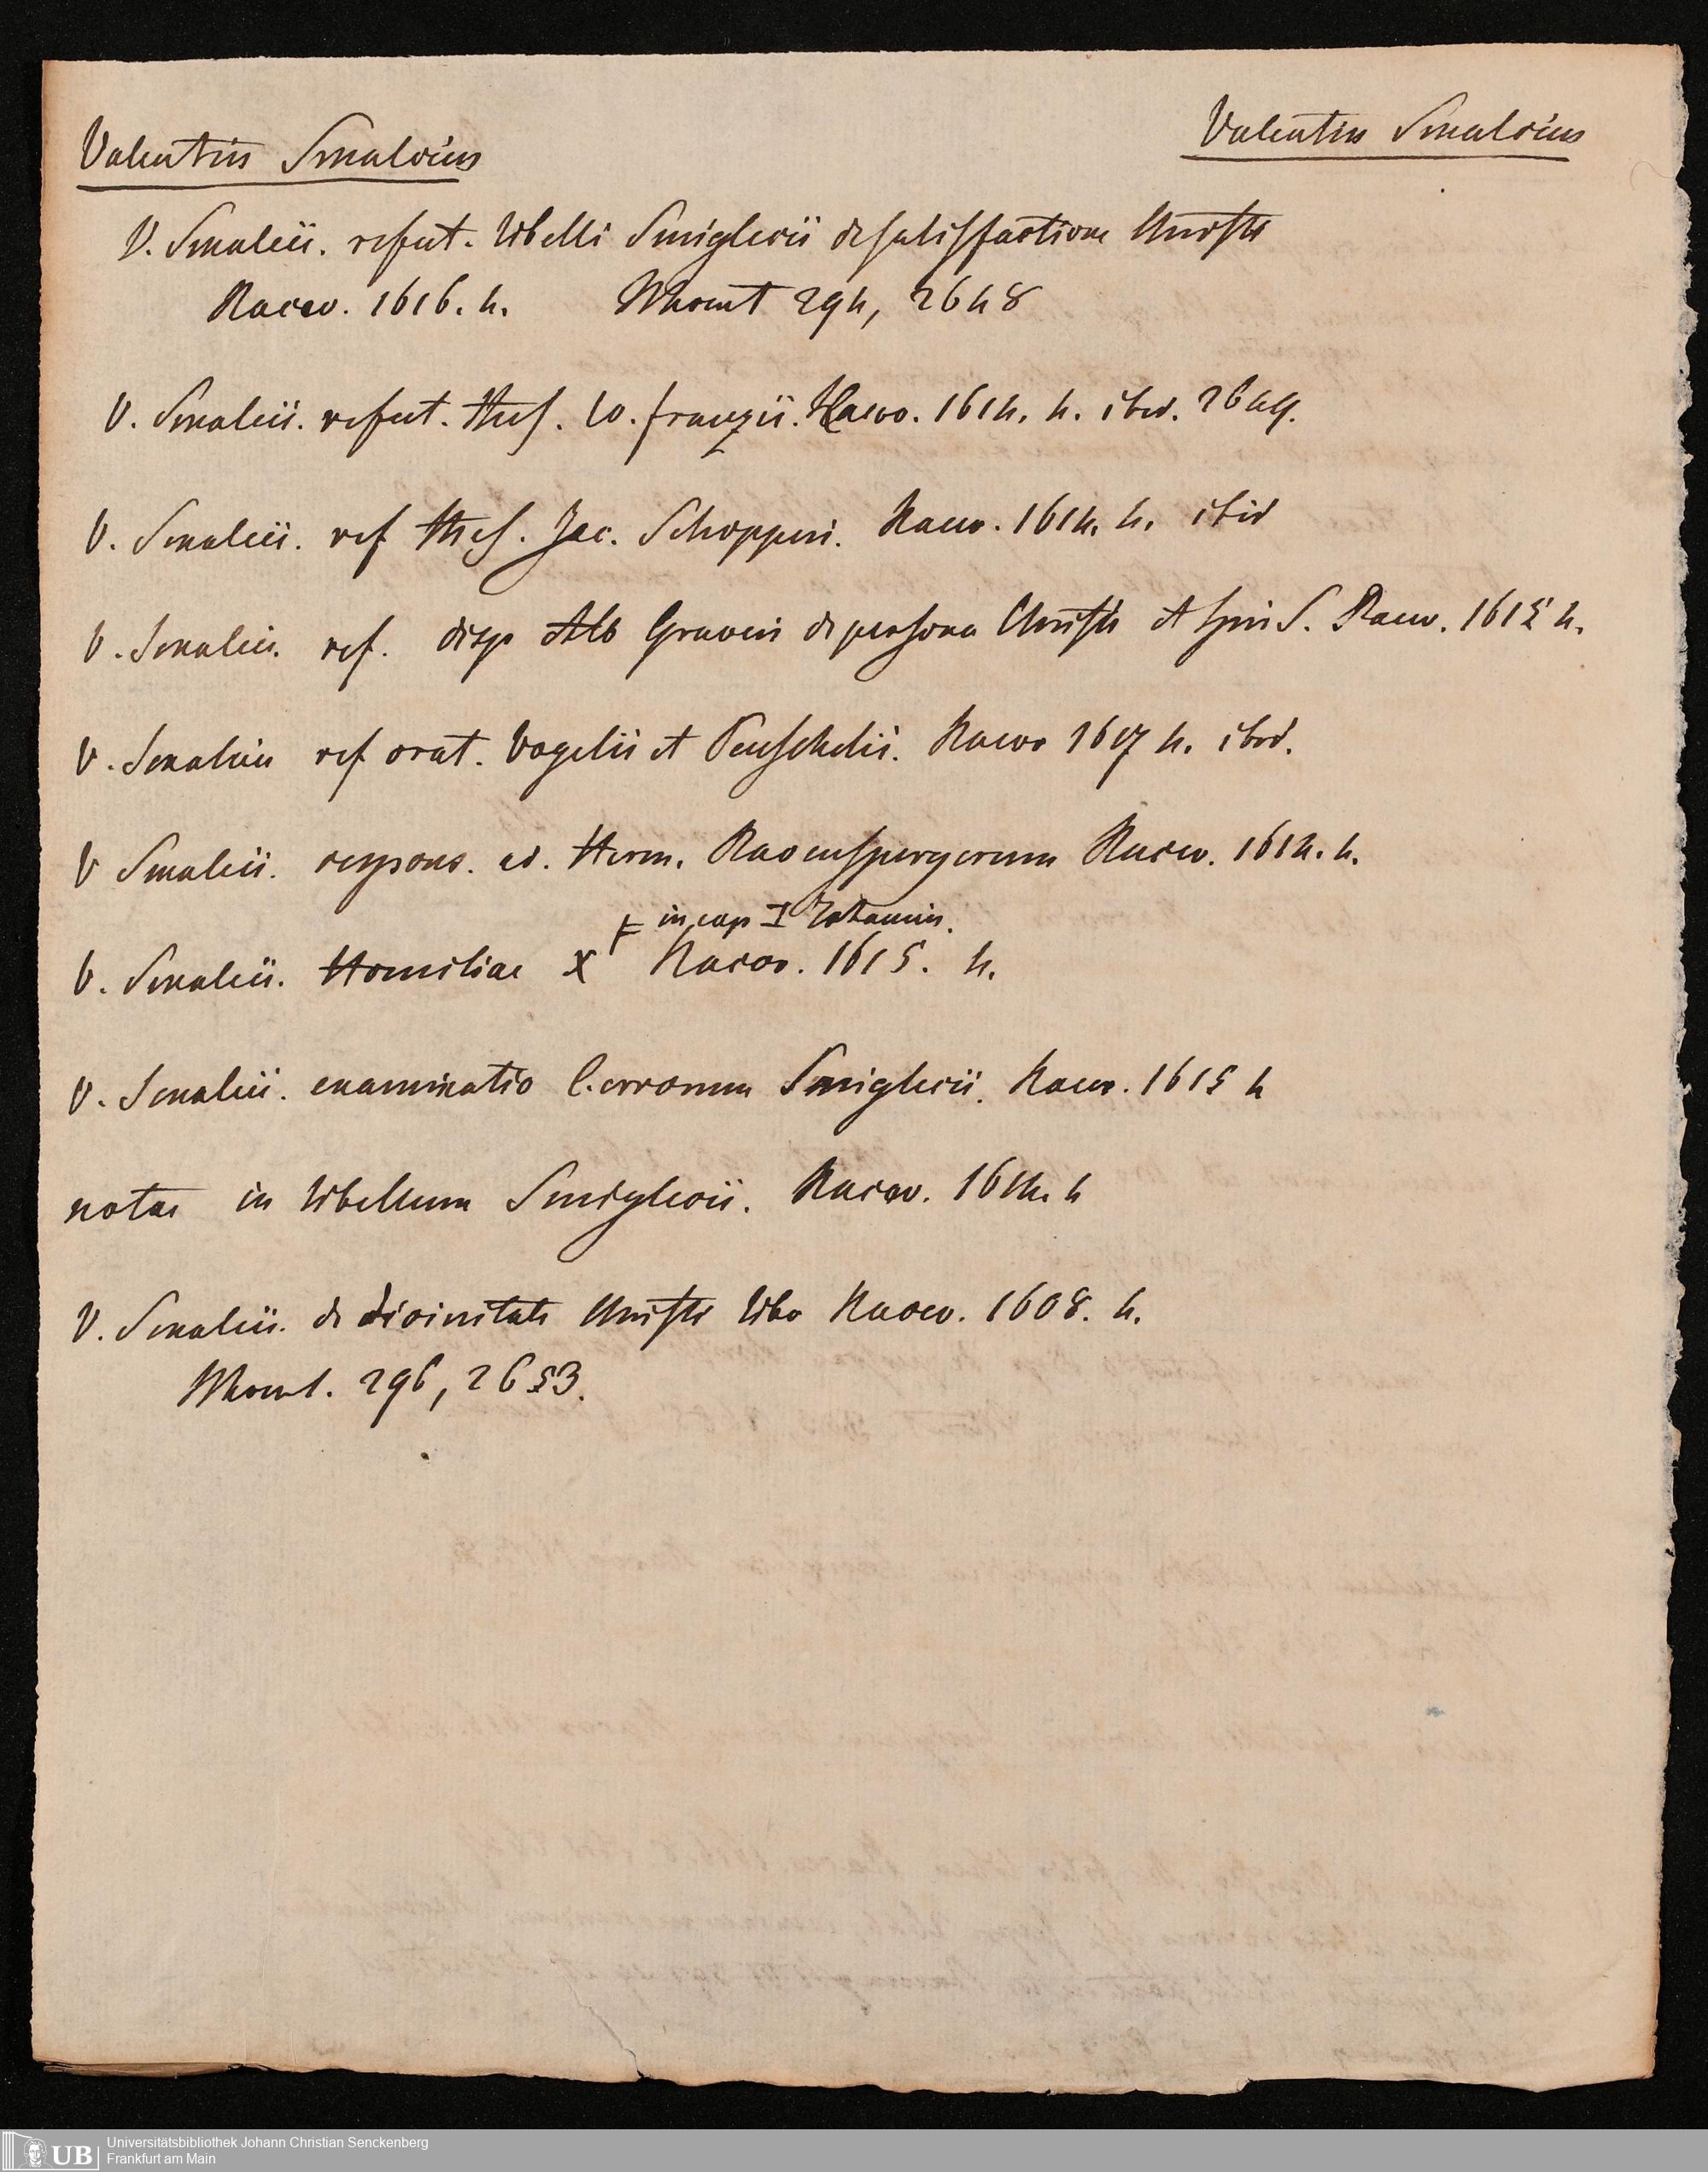 Valentin Smalcius
Valentin Smalcius
V. Smalcii. refut. libelli Smiglecii de satisfactione Christi
Racov. 1616. 4. 294, 2648
V. Smalcii. refut. thes. W. Franzii. Racov. 1614. 4. ibid. 2649.
V. Smalcii. ref thes. Jac. Schopperi. Racov. 1614. 4. ibid
V. Smalcii. ref. disp Alb Graweri de persona Christi et spir S. Racov. 1615 4.
V. Smalcii ref orat. Vogelii et Peuschelii. Racov 1617 4. ibid.
V Smalcii. respons. ad. Herm. Ravenspergerum Racov. 1614. 4.
F in cap I Johannis.
V. Smalcii. Homiliae X F Racov. 1615. 4.
V. Smalcii. examinatio C. errorum Smiglecii. Racov. 1615 4
notae in libellum Smiglecii. Racov. 1614. 4
V. Smalcii. de divinitate Christi liber Racov. 1608. 4.
296, 2653.
UB
Universitätsbibliothek Johann Christian Senckenberg
Frankfurt am Main